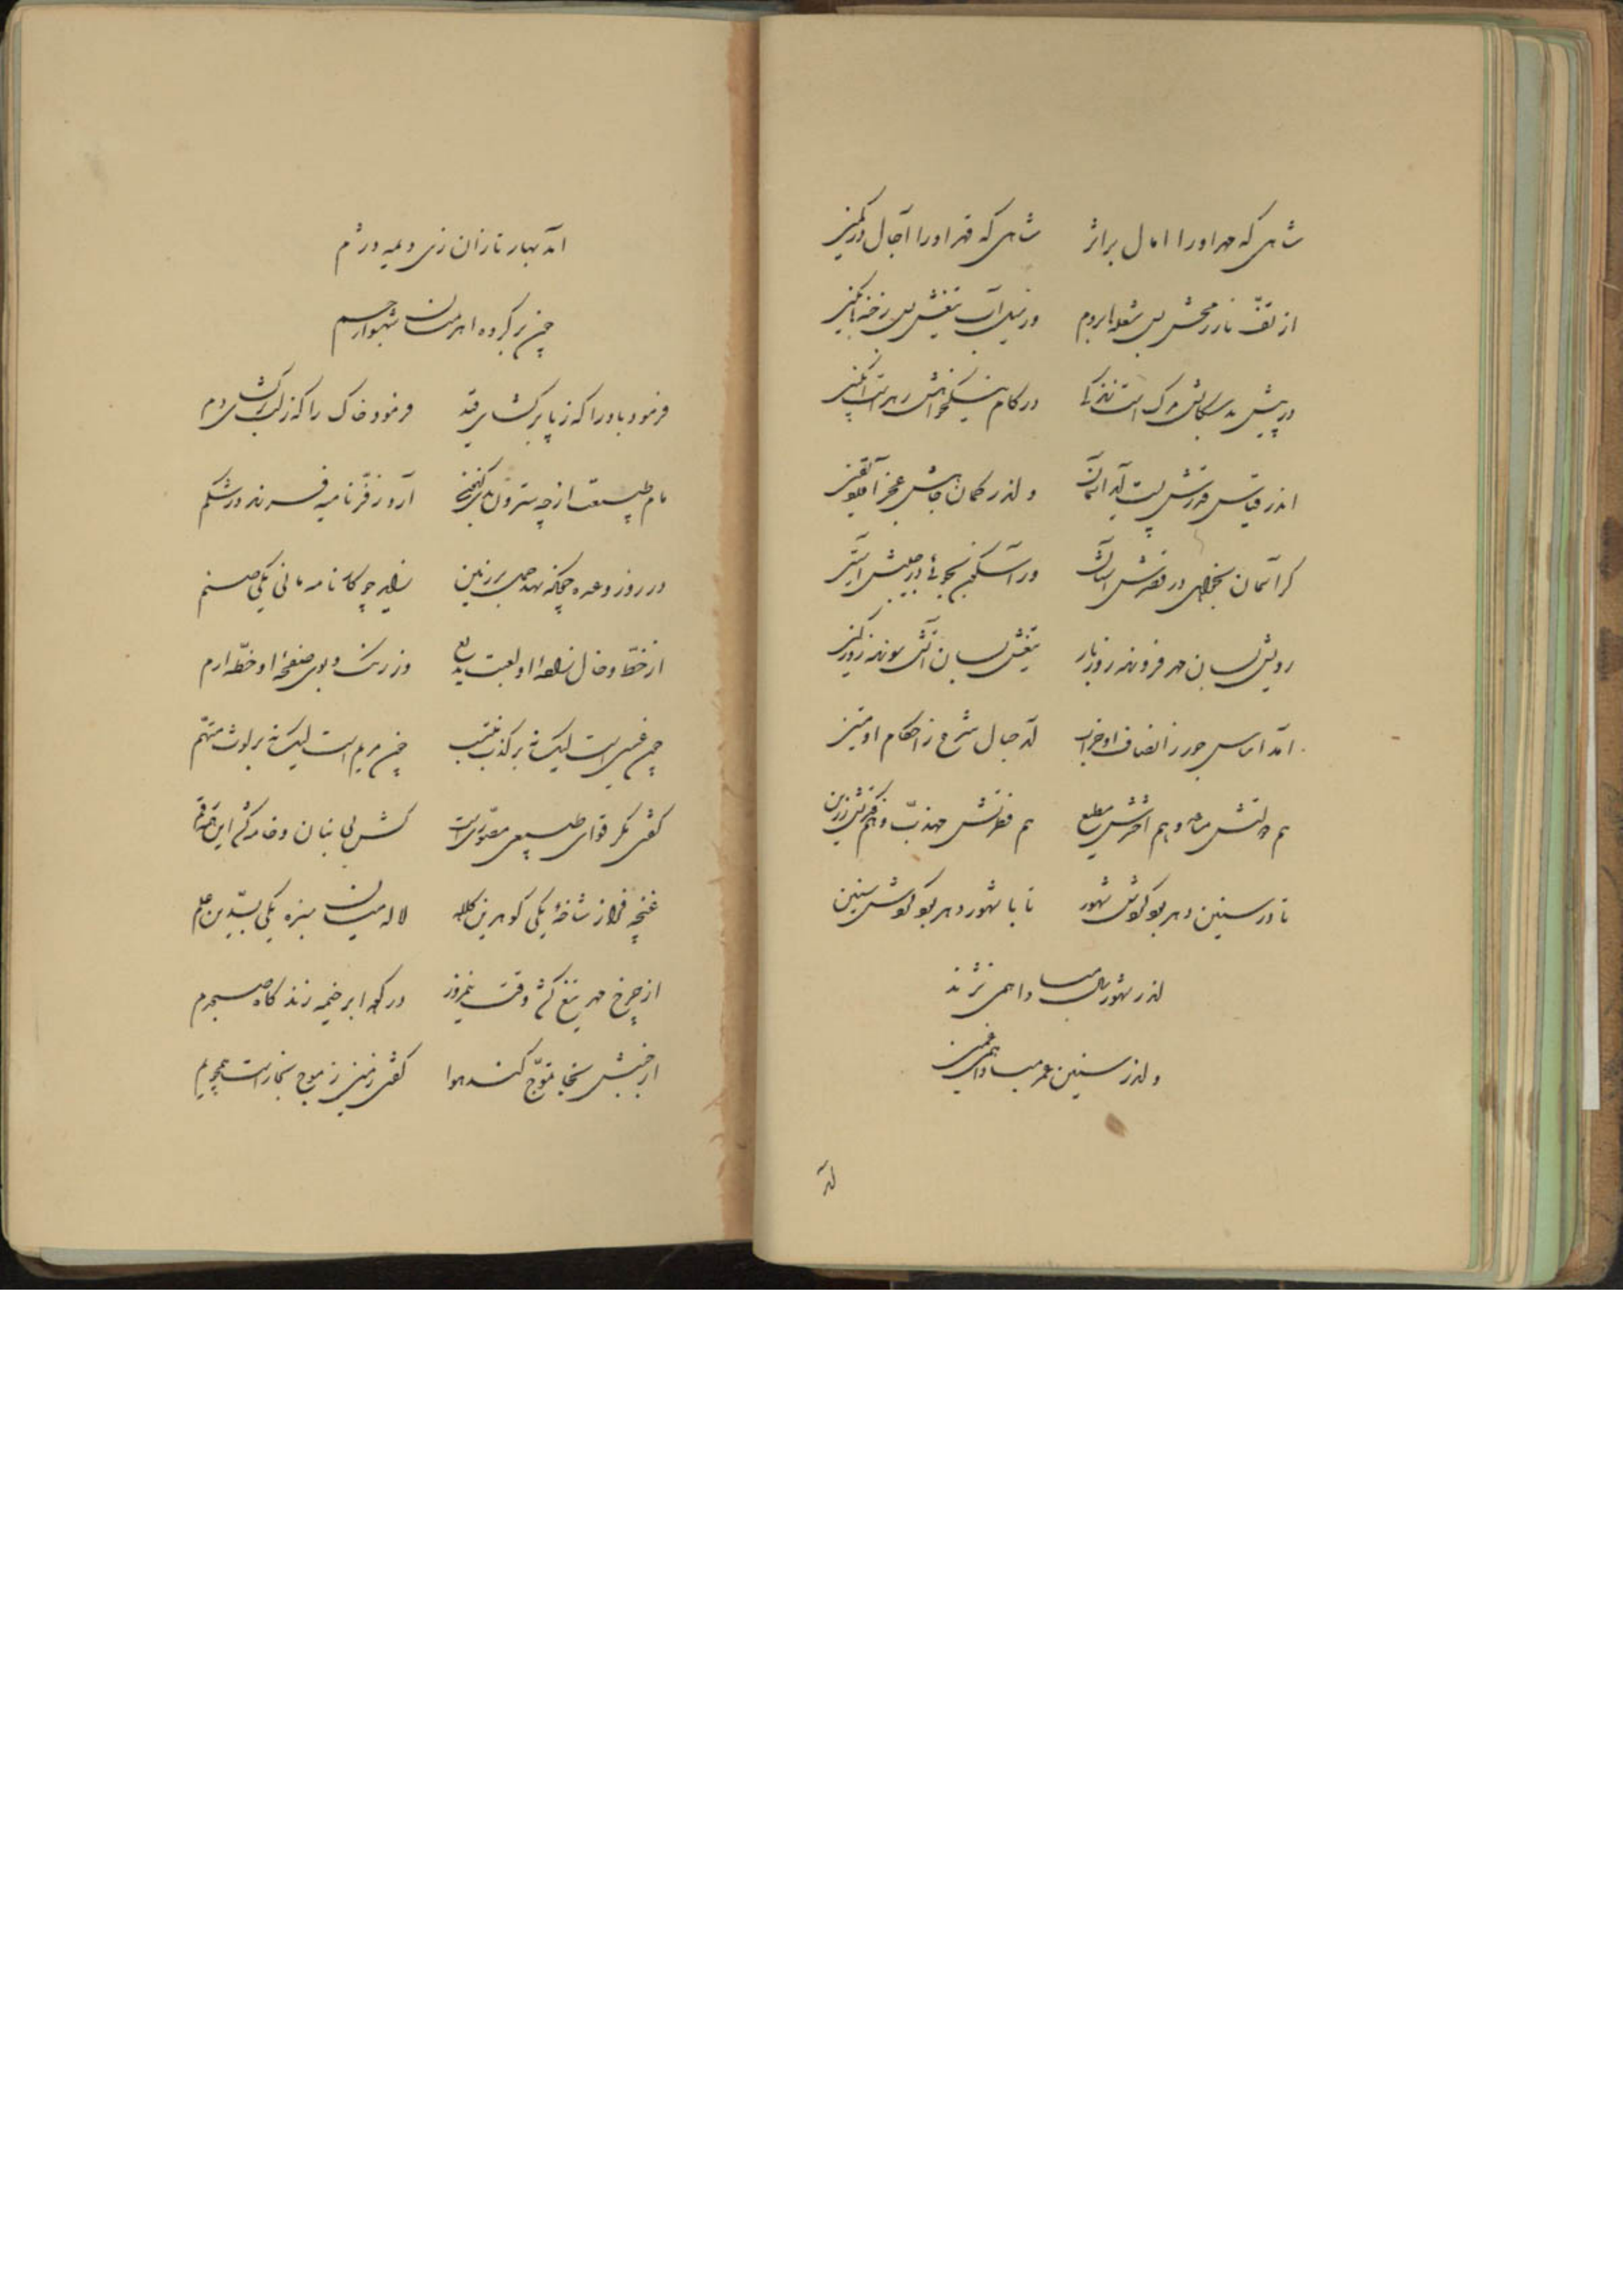 شاهی که مهر او را آمال بر اثر شاهی که قهر او را آجال در کمین
از تفّ نار رمحش بس شعله با بروم وز سیل آب تیغش بس رخنه با بچین
در پیش بدسگالش مرگ است در کام نیکخواهش زهر است انگبین
اندر قیاس قدرش پست آید آسمان و اندر گمان جاهش عجز آورد یقین
گر آسمان بخواهی در قصرش آستان ور آستین بجوئی در جیبش آستین
رویش بسان مهر فروزنده روز بار تیغش بسان آتش سوزنده روز کین
آمد اساس جور ز انصاف او خراب آمد حبال شرع ز احکام او متین
هم دولتش مساعد و هم اخترش مطیع هم فطرتش مهذّب و هم فکرتش رزین
تا در سنین دهر بود گردش شهور تا با شهور دهر بود گردش سنین
اندر شهور سال مبادا همی نژند
و اندر سنین عمر مبادا همی غمین
آمد
آمد بهار تازان زی دیمه دژم
چون بر گروه اهرمنان شهسوار جم
فرمود باد را که ز پا برگشای قید فرمود خاک را که ز لب برگشای دم
مام طبیعت ار چه سترون بدی آرد ز فرّ نامیه فرزند در شکم
در روز و عده بر زمین زاید چو کارنامه مانی یکی صنم
از خطّ و خال او لعبت بدیع وز رنگ و بوی صفحه او خطّه ارم
چون عیسی است لیک نه بر کذب منتسب چون مریم است لیک نه بر لوث متّهم
گفتی مگر قوای طبیعی مصوّر است کش بی بنان و خامه کشد این
غنچه فراز شاخه یکی گوهرین کلاه لاله میان سبزه یکی بسّدین علم
از چرخ مهر تیغ کشد وقت نیمروز در که ابر خیمه زند گاه صبحدم
از جنبش تموّج کند هوا گفتی زمین ز موج بخار است همچو یم